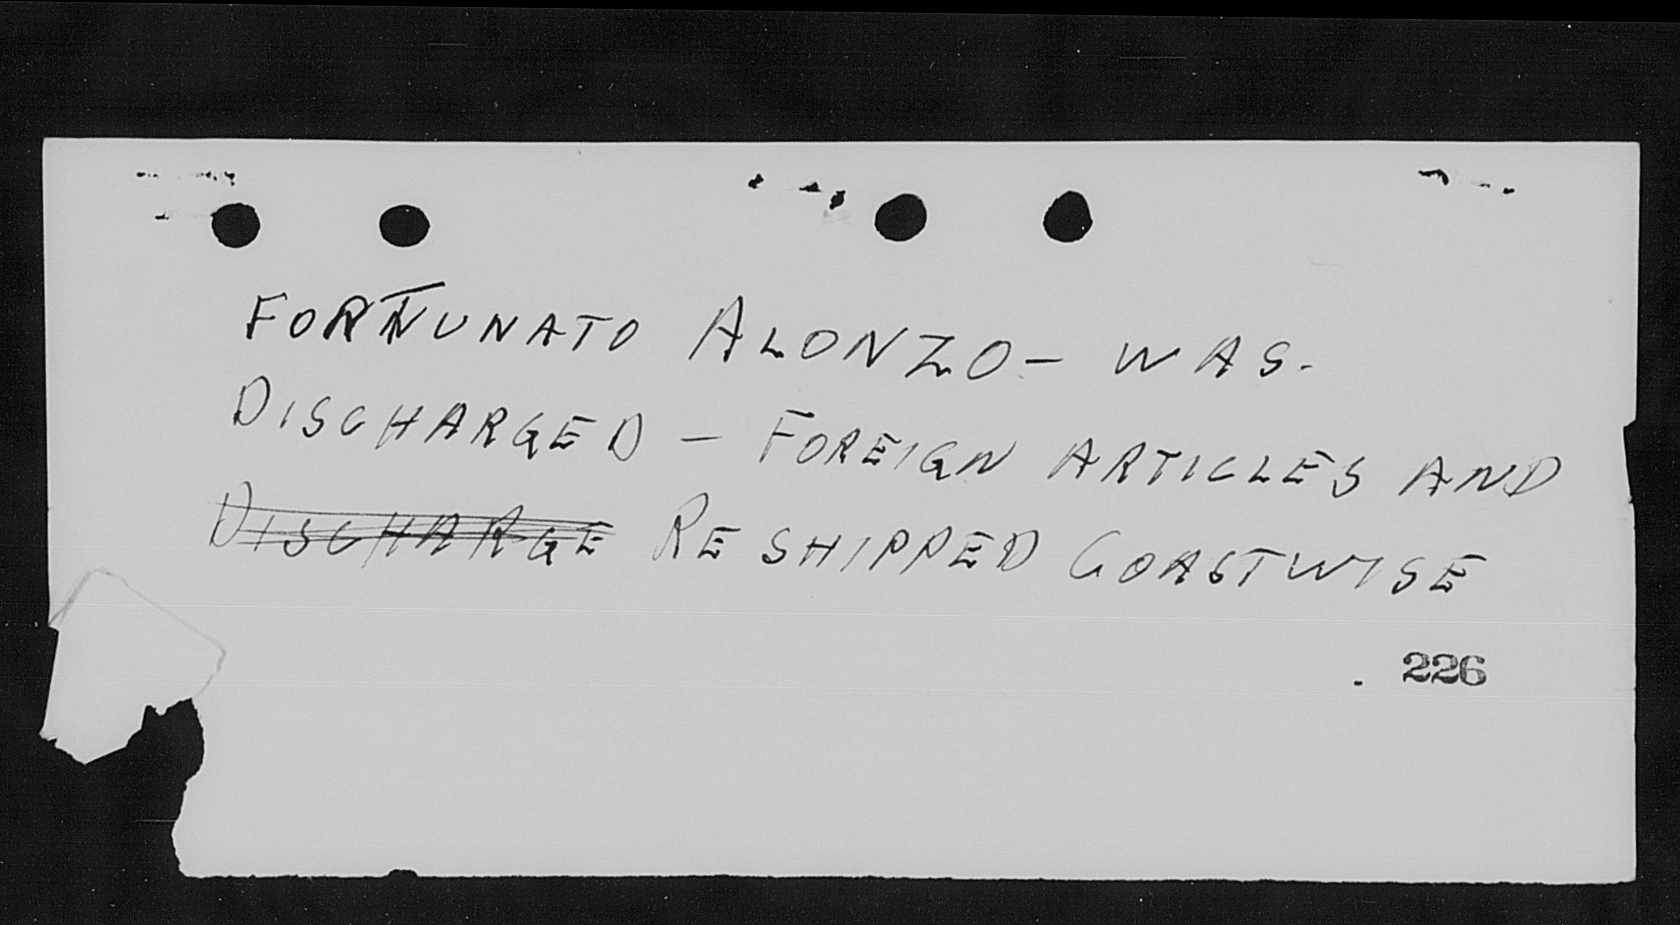 FORTUNATO ALONZO - WAS.
DISCHARGED - FOREIGN ARTICLES AND
DISCHARGE RESHIPPED COASTWISE
. 226